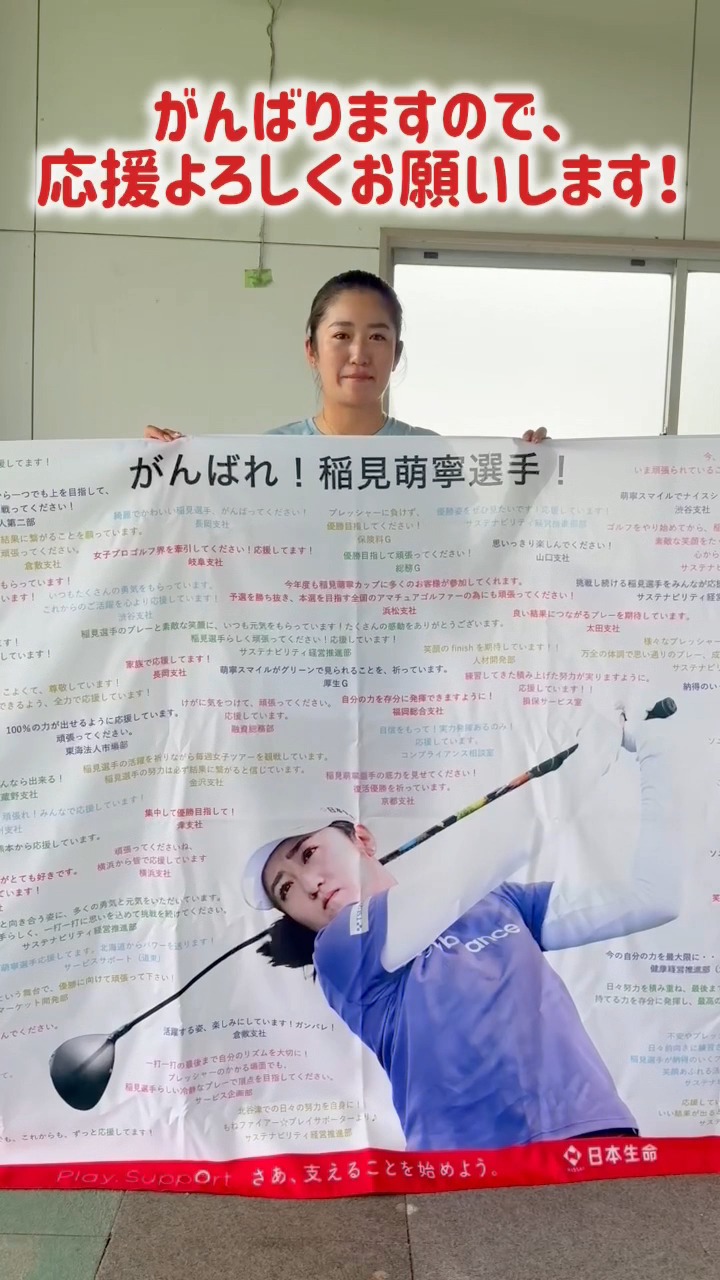 がんばりますので、
応援よろしくお願いします!
がんばれ！稲見萌寧選手！
援してます！
から一つでも上を目指して、
戦ってください！
人第二部
綺麗でかわいい稲見選手、がんばってください！
長岡支社
プレッシャーに負けず、
優勝目指してください！
保険料G
優勝姿をぜひ見たいです！応援しています！
いま頑張られているこ
萌寧スマイルでナイスシ
渋谷支社
結果に繋がることを願っています。
頑張ってください。
倉敷支社
女子プロゴルフ界を牽引してください！応援してます！
岐阜支社
優勝目指して頑張ってください！
総務G
思いっきり楽しんでください！
山口支社
ゴルフをやり始めてから、
素敵な笑顔をた
心から
いつもたくさんの勇気をもらっています。
これからのご活躍を心より応援しています！
渋谷支社
今年度も稲見萌寧カップに多くのお客様が参加してくれます。
予選を勝ち抜き、本選を目指す全国のアマチュアゴルファーの為にも頑張ってください！
浜松支社
挑戦し続ける稲見選手をみんなが応
サステナビリティ経営
良い結果につながるプレーを期待しています。
太田支社
稲見選手のプレーと素敵な笑顔に、いつも元気をもらっています！たくさんの感動をありがとうございます。
稲見選手らしく頑張ってください！応援しています！
サステナビリティ経営推進部
笑顔の finish を期待しています！！
人材開発部
様々なプレッシャー
万全の体調で思い通りのプレー、成
サステナビ
家族で応援してます！
長岡支社
萌寧スマイルがグリーンで見られることを、祈っています。
厚生G
練習してきた積み上げた努力が実りますように。
応援しています！！
損保サービス室
こよくて、尊敬しています！
できるよう、全力で応援しています！
けがに気をつけて、頑張ってください。
応援しています。
融資総務部
自分の力を存分に発揮できますように！
福岡総合支社
納得のい
100%の力が出せるように応援しています。
頑張ってください。
東海法人市場部
自信をもって！実力発揮あるのみ！
応援しています。
コンプライアンス相談室
稲見選手の活躍を祈りながら毎週女子ツアーを観戦しています。
稲見選手の努力は必ず結果に繋がると信じています。
金沢支社
稲見萌寧選手の底力を見せてください！
復活優勝を祈っています。
京都支社
んなら出来る！
蔵野支社
頑張れ！みんなで応援しています！
集中して優勝目指して！
津支社
熊本から応援しています。
頑張ってくださいね、
横浜から皆で応援しています
横浜支社
がとても好きです。
ています！
と向き合う姿に、多くの勇気と元気をいただいています。
手らしく、一打一打に思いを込めて挑戦を続けてください。
サステナビリティ経営推進部
萌寧選手応援してます。北海道からパワーを送ります！
サービスサポート（道東）
今の自分の力を最大限に・・
健康経営推進部
という舞台で、優勝に向けて頑張って下さい！
マーケット開発部
日々努力を積み重ね、最後ま
持てる力を存分に発揮し、最高の
んでください。
活躍する姿、楽しみにしています！ガンバレ！
倉敷支社
不安やプレッシ
日々前向きに練習さ
稲見選手が納得のいくプ
笑顔あふれる活
サステナ
一打一打の最後まで自分のリズムを大切に！
プレッシャーのかかる場面でも、
稲見選手らしい冷静なプレーで頂点を目指してください。
サービス企画部
北谷津での日々の努力を自身に！
もねファイアー☆プレイサポーターより♪
サステナビリティ経営推進部
でも、これからも、ずっと応援してます！
応援してい
いい結果が出る
Play,Support さあ、支えることを始めよう。
NISSAY 日本生命